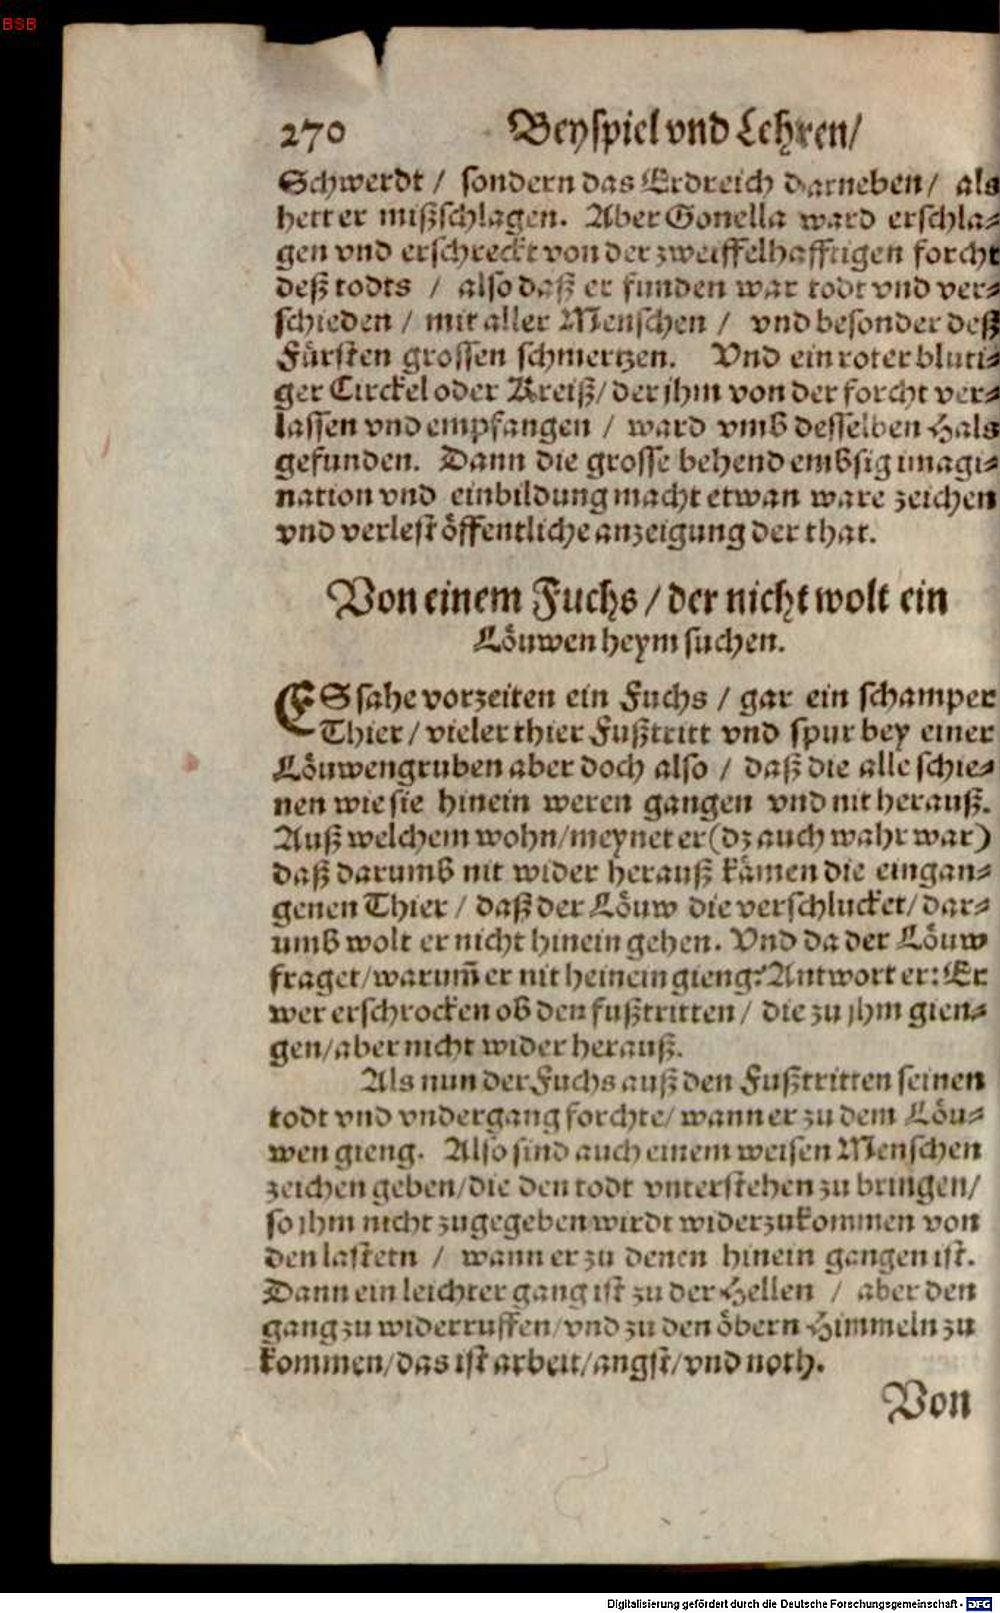 BSB
270 Beyspiel vnd Lehren/
Schwerdt / sondern das Erdreich darneben / als
hett er mißschlagen. Aber Gonella ward erschla⸗
gen vnd erschreckt von der zweiffelhafftigen forcht
deß todts / also daß er funden war todt vnd ver⸗
schieden / mit aller Menschen / vnd besonder deß
Fürsten grossen schmertzen. Vnd ein roter bluti⸗
ger Circkel oder Kreiß/ der jhm von der forcht ver⸗
lassen vnd empfangen / ward vmb desselben Hals
gefunden. Dann die grosse behend embsig imagi⸗
nation vnd einbildung macht etwan ware zeichen
vnd verlest öffentliche anzeigung der that.
Von einem Fuchs / der nicht wolt ein
Löuwen heym suchen.
ES sahe vorzeiten ein Fuchs / gar ein schamper
Thier / vieler thier Fußtritt vnd spur bey einer
Löuwengruben aber doch also / daß die alle schie⸗
nen wie sie hinein weren gangen vnd nit herauß.
Auß welchem wohn/meynet er (dz auch wahr war)
daß darumb nit wider herauß kämen die eingan⸗
genen Thier / daß der Löuw die verschlucket/ dar⸗
umb wolt er nicht hinein gehen. Vnd da der Löuw
fraget/warum̃ er nit heinein gieng? Antwort er: Er
wer erschrocken ob den fußtritten / die zu jhm gien⸗
gen/aber nicht wider herauß.
Als nun der Fuchs auß den Fußtritten seinen
todt vnd vndergang forchte/ wann er zu dem Löu⸗
wen gieng. Also sind auch einem weisen Menschen
zeichen geben/die den todt vnterstehen zu bringen/
so jhm nicht zugegeben wirdt widerzukommen von
den lastern / wann er zu denen hinein gangen ist.
Dann ein leichter gang ist zu der Hellen / aber den
gang zu widerruffen/vnd zu den öbern Himmeln zu
kommen/das ist arbeit/angst/vnd noth.
Von
Digitalisierung gefördert durch die Deutsche Forschungsgemeinschaft - DFG